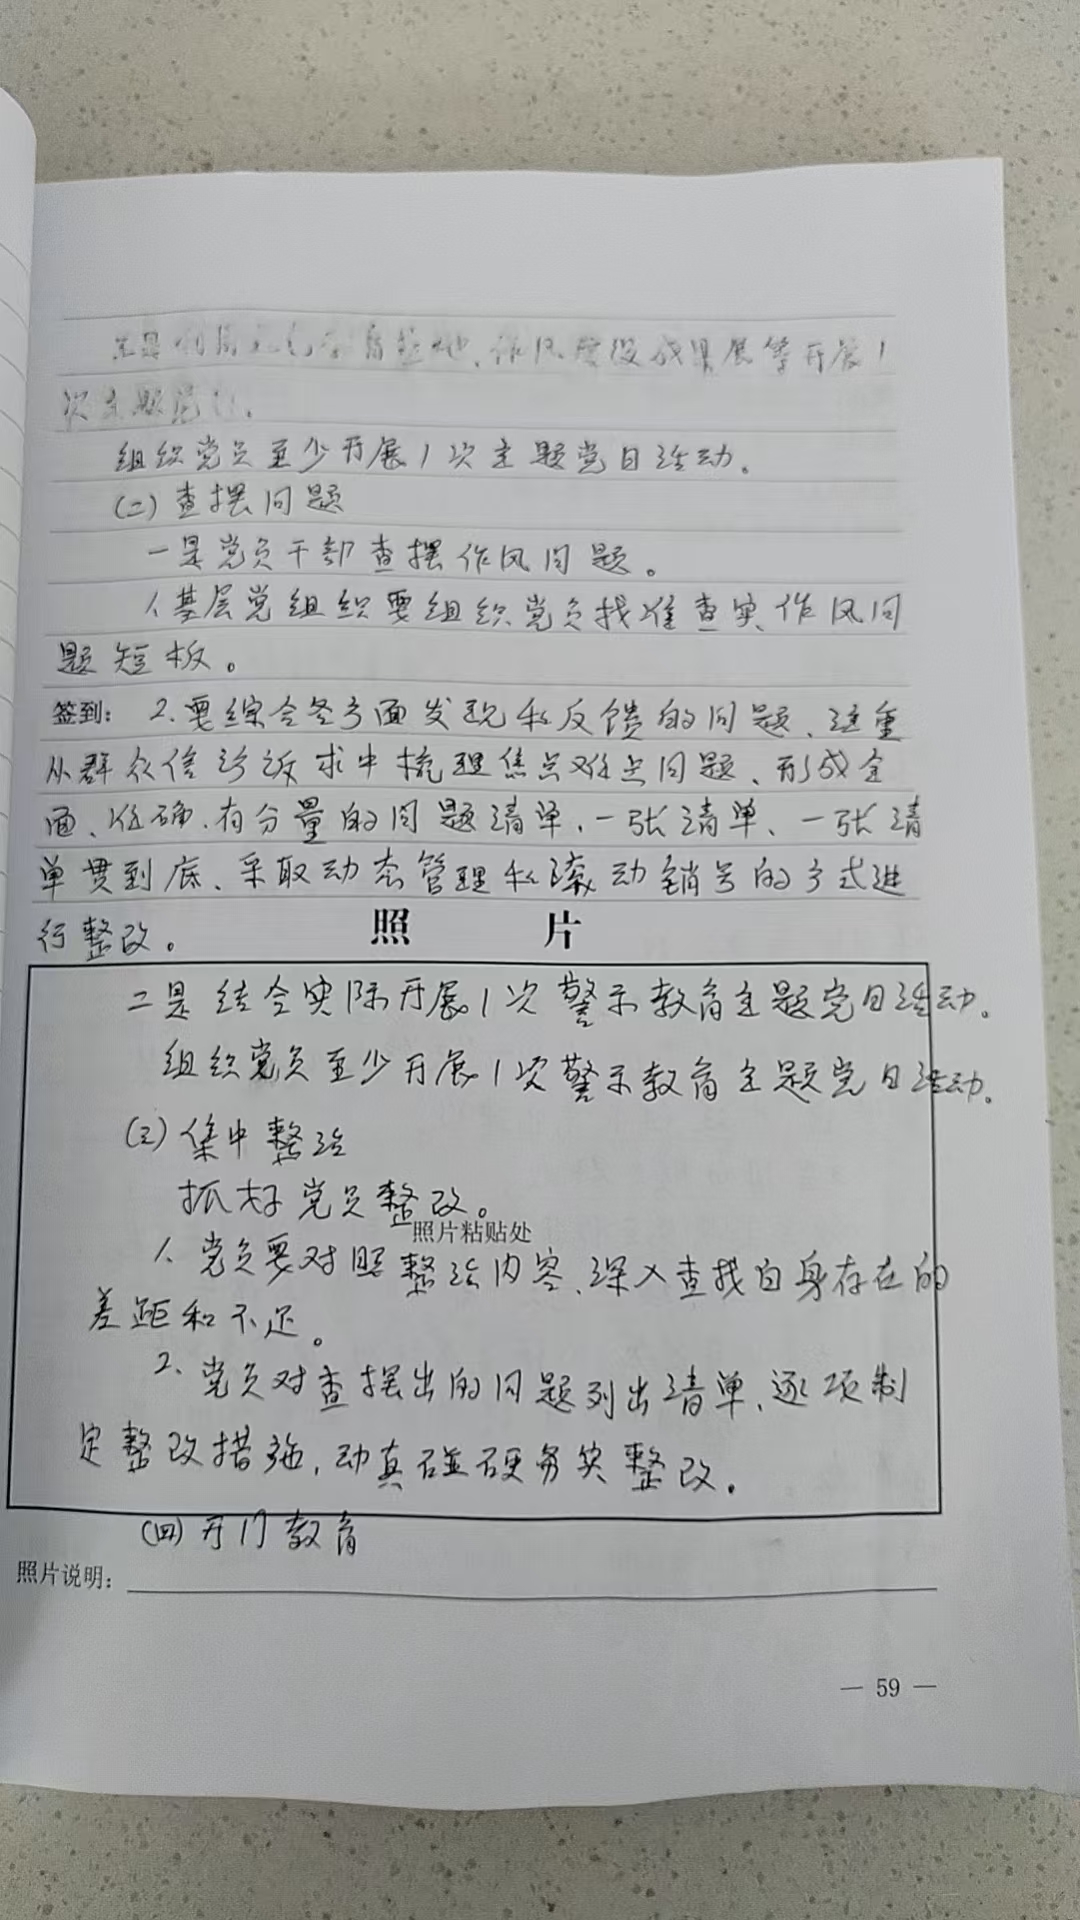 三是利用红色教育基地、作风建设成果展等开展1
次主题党日。
组织党员至少开展1次主题党日活动。
(二)查摆问题
一是党员干部查摆作风问题。
1.基层党组织要组织党员找准查实作风问
题短板。
签到: 2.要综合各方面发现和反馈的问题、注重
从群众信访诉求中梳理焦点难点问题、形成全
面、准确、有分量的问题清单、一张清单、一张清
单贯到底、采取动态管理和滚动销号的方式进
行整改。
照 片
二是结合实际开展1次警示教育主题党日活动。
组织党员至少开展1次警示教育主题党日活动。
(三)集中整治
抓好党员整改。
照片粘贴处
1.党员要对照整治内容、深入查找自身存在的
差距和不足。
2.党员对查摆出的问题列出清单、逐项制
定整改措施,动真碰硬务实整改。
(四)开门教育
照片说明:
— 59 —